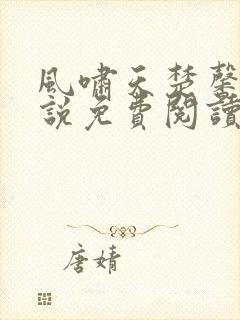 風嘯天楚馨
說免費閱讀
唐婧